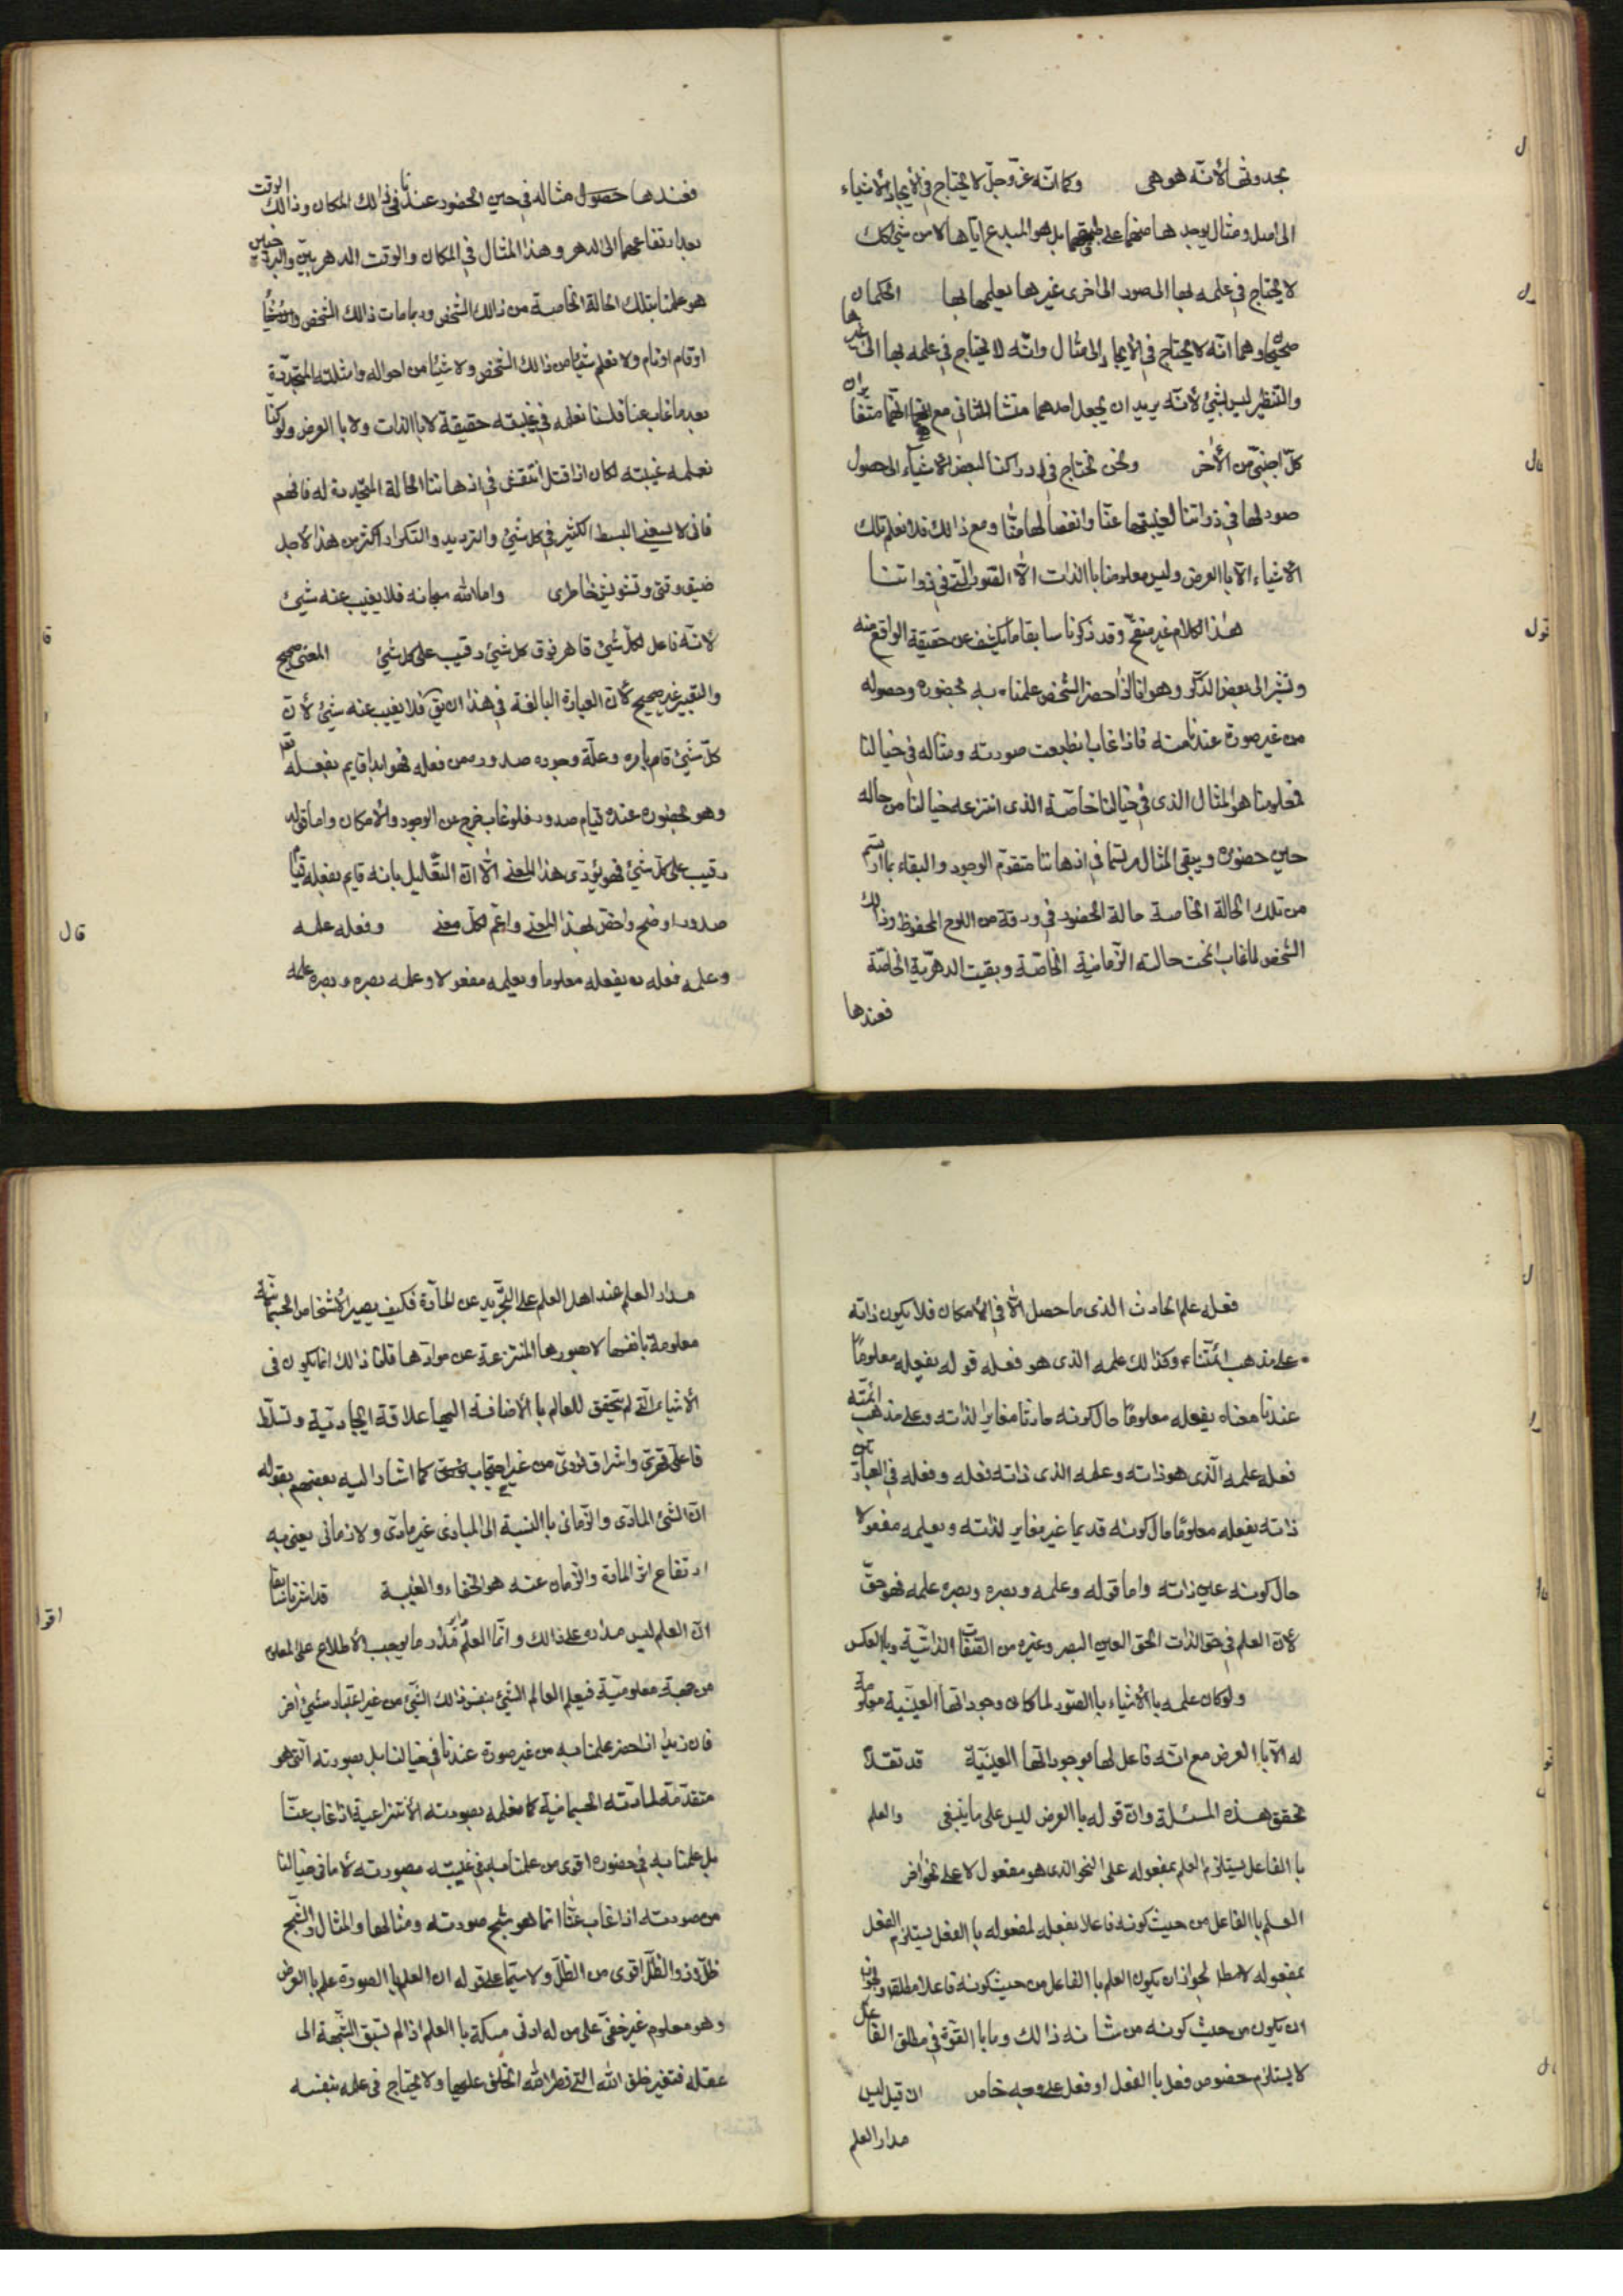 بحدوثها لأنّه هو هى وكما انّه عزّ وجلّ لا يحتاج فى الإيجاد للأشياء
الى اصل ومثال يوجدها بل هو المبدع اياها لا من شئ كك
لا يحتاج فى علمه بها الى صور اخرى غيرها يعلمها بها الحكمان
صحيحان وهما انّه لا يحتاج فى الأيجاد إلى مثال وانّه لا يحتاج فى علمه بها الى غيرها
والتنظير ليس بشئ لأنّه يريد ان يجعل احدهما منشأ الثانى مع انهما
كلّ اجنبىّ من الأخر ونحن نحتاج فى ادراكنا لبعض الاشياء الى حصول
صور لها فى ذواتنا لغيبتها عنّا وانفصالها منّا ومع ذالك فلا نعلم تلك
الاشياء الّا باالعرض وليس معلومنا باالذات الّا الصّور الّتى فى ذواتنا
هذا الكلام غير منقّح وقد ذكرنا سابقا ما يكشف عن حقيقة الواقع منه
ونشير الى بعض الذّكر وهو انّا اذا حضر الشّخص علمناه به بحضوره وحصوله
من غير صورة عندنا منه فاذا غاب انطبعت صورته ومثاله فى خيالنا
فمعلومنا هو المثال الذى فى خيالنا خاصّة الذى انتزعه خيالنا من حاله
حين حضوره ويبقى المثال مرتسما فى اذهاننا متقوّم الوجود والبقاء بما ارتسم
من تلك الحالة الخاصة حالة الحضور فى ورقة من اللوح المحفوظ وذالك
الشخص لمّا غاب انمحت حالته الزّمانية الخاصّة وبقيت الدهريّة الخاصّة
فعندها
فعندها حصول مثاله فى حين الحضور عندنا فى ذالك المكان وذالك الوقت
بعد ارتفاعهما الى الدهر وهذا المثال فى المكان والوقت الدهريّين والبرزخيين
هو علمنا بتلك الحالة الخاصة من ذالك الشّخص وربما مات ذالك الشخص
او قام او نام ولا نعلم شيئا من ذالك الشّخص ولا شيئا من احواله وامثلته المتجدّدة
بعد ما غاب عنّا فلسنا نعلمه فى غيبته حقيقة لا باالذات ولا باالعرض ولو كنّا
نعلمه غيبته لكان اذا قتل انتقش فى اذهاننا الحالة المتجدّدة له فافهم
فانى لا يسعنى البسط الكثير فى كل شئ والترديد والتكرار اكثر من هذا لأجل
ضيق وقتى وتشويش خاطرى وامّا الله سبحانه فلا يغيب عنه شئ
لانّه فاعل لكلّ شئ قاهر فوق كل شئ رقيب على كل شئ المعنى صحيح
والتعبير غير صحيح لأنّ العبارة البالغة فى هذا ان يق فلا يغيب عنه شئ لأنّ
كلّ شئ قام بامره وعلّة وجوده صدوره من فعله فهو ابدا قايم بفعله تعالى
وهو بحضوره عنده قيام صدور فلو غاب خرج من الوجود والأمكان وامّا قوله
رقيب على كلّ شئ فهو يؤدّى هذا المعنى الّا انّ التّعليل بانه قايم بفعله قيام
صدور اوضح واخصّ لهذا المعنى واعمّ لكلّ معنى وفعله علمه
وعلمه فعله به يفعله معلوما ويعلمه مفعولا وعلمه بصره وبصره علمه
قال
فعله علم الحادث الذى ما حصل الّا فى الأمكان فلا يكون ذاته
على مذهب ائمّتناء وكذا لك علمه الذى هو فعله قوله يفعله معلومًا
عندنا معناه يفعله معلومًا حال كونه حادثا مغايرا لذاته وعلى مذهب ائمّته
فعله علمه الّذى هو ذاته وعلمه الذى ذاته فعله وفعله فى العبارتين
ذاته يفعله معلومًا حال كونه قديما غير مغاير لذاته ويعلمه مفعولا
حال كونه عين ذاته واما قوله وعلمه وبصره وبصره علمه فهو حقّ
لأنّ العلم فى حق الذات الحق العين البصر وغيره من الصّفات الذاتيّة وباالعكس
ولو كان علمه باالأشياء باالصّور لما كان وجوداتها العينيّة معلومة
له الّا باالعرض مع انّه فاعل لها بوجوداتها العينيّة قد تقدّم
تحقق هذه المسئلة وانّ قوله باالعرض ليس على ما ينبغى والعلم
باالفاعل يستلزم العلم بمفعوله على النحو الذى هو مفعول لا على نحو اخر
العلم باالفاعل من حيث كونه فاعلا بفعله لمفعوله باالفعل يستلزم الفعل
بمفعوله لا مطلقا لجواز ان يكون العلم باالفاعل من حيث كونه فاعلا مطلقا وبجواز
ان يكون من حيث كونه من شانه ذالك وما باالقوّة فى مطلق الفاعل
لا يستلزم خصوص فعل باالفعل او فعل على وجه خاص ان قيل ليس
مدار العلم
مدار العلم عند اهل العلم على التّجريد عن المادّة فكيف يصير الأشخاص الجسمانيّة
معلومة بانفسها لا بصورها المنتزعة عن موادّها قلنا ذالك انما يكون فى
الأشياء الّتى لم يتحقق للعالم باالأضافة اليها علاقة ايجاديّة وتسلّط
فاعلىّ قهرىّ واشراق نورىّ من غير احتجاب كما اشار اليه بعضهم بقوله
انّ الشئ المادّى والزّمانى باالنسبة الى المبادى غير مادّى ولا زمانى يعنى به
ارتفاع اثر المادة والزّمان عنه هو الخفاء والغيبة قد اشرنا سابقا
انّ العلم ليس مداره على ذالك وانّما العلم مداره ما يوجب الأطلاع على المعلوم
من جهة معلوميّة فيعلم العالم الشّئ بنفس ذالك الشّئ من غير اعتبار شئ اخر
فان زيدا اذا حضر علمنا به من غير صورة عندنا فى خيالنا بل بصورته الّتى هو
متقدّمة لمادّته الجسمانية كما نعلمه بصورته الأنتزاعية اذا غاب عنّا
بل علمنا به فى حضوره اقوى من علمنا به فى غيبته بصورته لأنّ ما فى خيالنا
من صورته اذا غاب عنّا انّما هو شبح صورته ومثالها والمثال والشّبح
ظلّ وذو الظّلّ اقوى من الظّلّ ولا سيّما على قوله ان العلم باالصورة علم باالعرض
وهو معلوم غير خفىّ على من له ادنى مسكة باالعلم اذا لم تسبق الشّبهة الى
عقله فتغيّر خلق الله التى فطر الله الخلق عليها ولا يحتاج فى علمه بنفسه